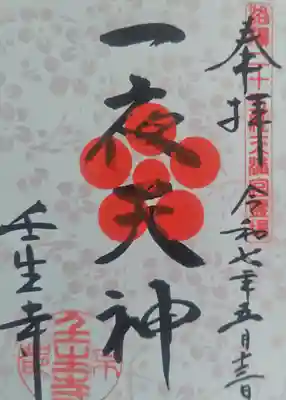 奉拝 令和七年五月十三日
一夜天神
壬生寺
壬生寺